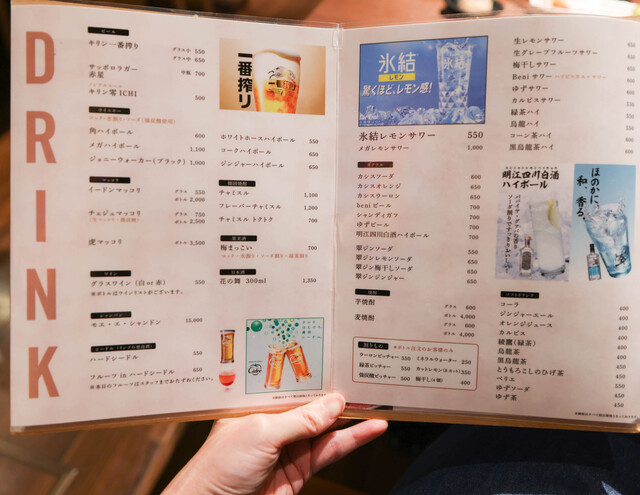 DRINK
ビール
キリン一番搾り グラス小 550
グラス中 650
サッポロラガー
赤星 中瓶 700
ノンアルコール
キリン零ICHI 500
ウイスキー
角ハイボール 600
メガハイボール 1,100
ジョニーウォーカー(ブラック) 1,000
マッコリ
イードンマッコリ グラス 550
ボトル 2,500
チョジュマッコリ グラス 750
ボトル 2,800
虎マッコリ ボトル 3,500
ワイン
グラスワイン(白or赤) 550
※ボトルはワインリストがございます。
シャンパン
モエ・エ・シャンドン 15,000
ハードシードル 550
フルーツ in ハードシードル 650
※本日のフルーツはスタッフまでおたずねください。
一番搾り
ホワイトホースハイボール 550
コークハイボール 650
ジンジャーハイボール 650
韓国焼酎
チャミスル 1,100
フレーバーチャミスル 1,200
チャミスル トクトク 700
果実酒
梅まっこい 700
ロック・水割り・ソーダ割り・緑茶割り
日本酒
花の舞 300ml 1,350
氷結
レモン
驚くほど、レモン感!
氷結レモンサワー 550
メガレモンサワー 1,000
カクテル
カシスソーダ
カシスオレンジ
カシスウーロン
beni ビール
シャンディガフ
ゆずビール
明江四川白酒ハイボール
翠ジンソーダ
翠ジンレモンソーダ
翠ジン梅干しソーダ
翠ジンジンジャー
焼酎
芋焼酎 グラス 600
ボトル 4,000
麦焼酎 グラス
ボトル 4,000
割りもの ※ボトル注文のお客様のみ
ウーロンピッチャー 550
緑茶ピッチャー 550
ミネラルウォーター 250
カットレモン
梅干し
生レモンサワー
生グレープフルーツサワー
梅干しサワー
Beni サワー
ゆずサワー
カルピスサワー
緑茶ハイ
烏龍ハイ
コーン茶ハイ
黒烏龍ハイ
明江四川白酒
ハイボール
ほのかに、
和、香る。
ソフトドリンク
コーラ 400
ジンジャーエール 400
オレンジジュース 400
カルピス 400
綾鷹(緑茶) 400
烏龍茶 400
黒烏龍茶
とうもろこしのひげ茶
ペリエ
ゆずソーダ 450
ゆず茶 450